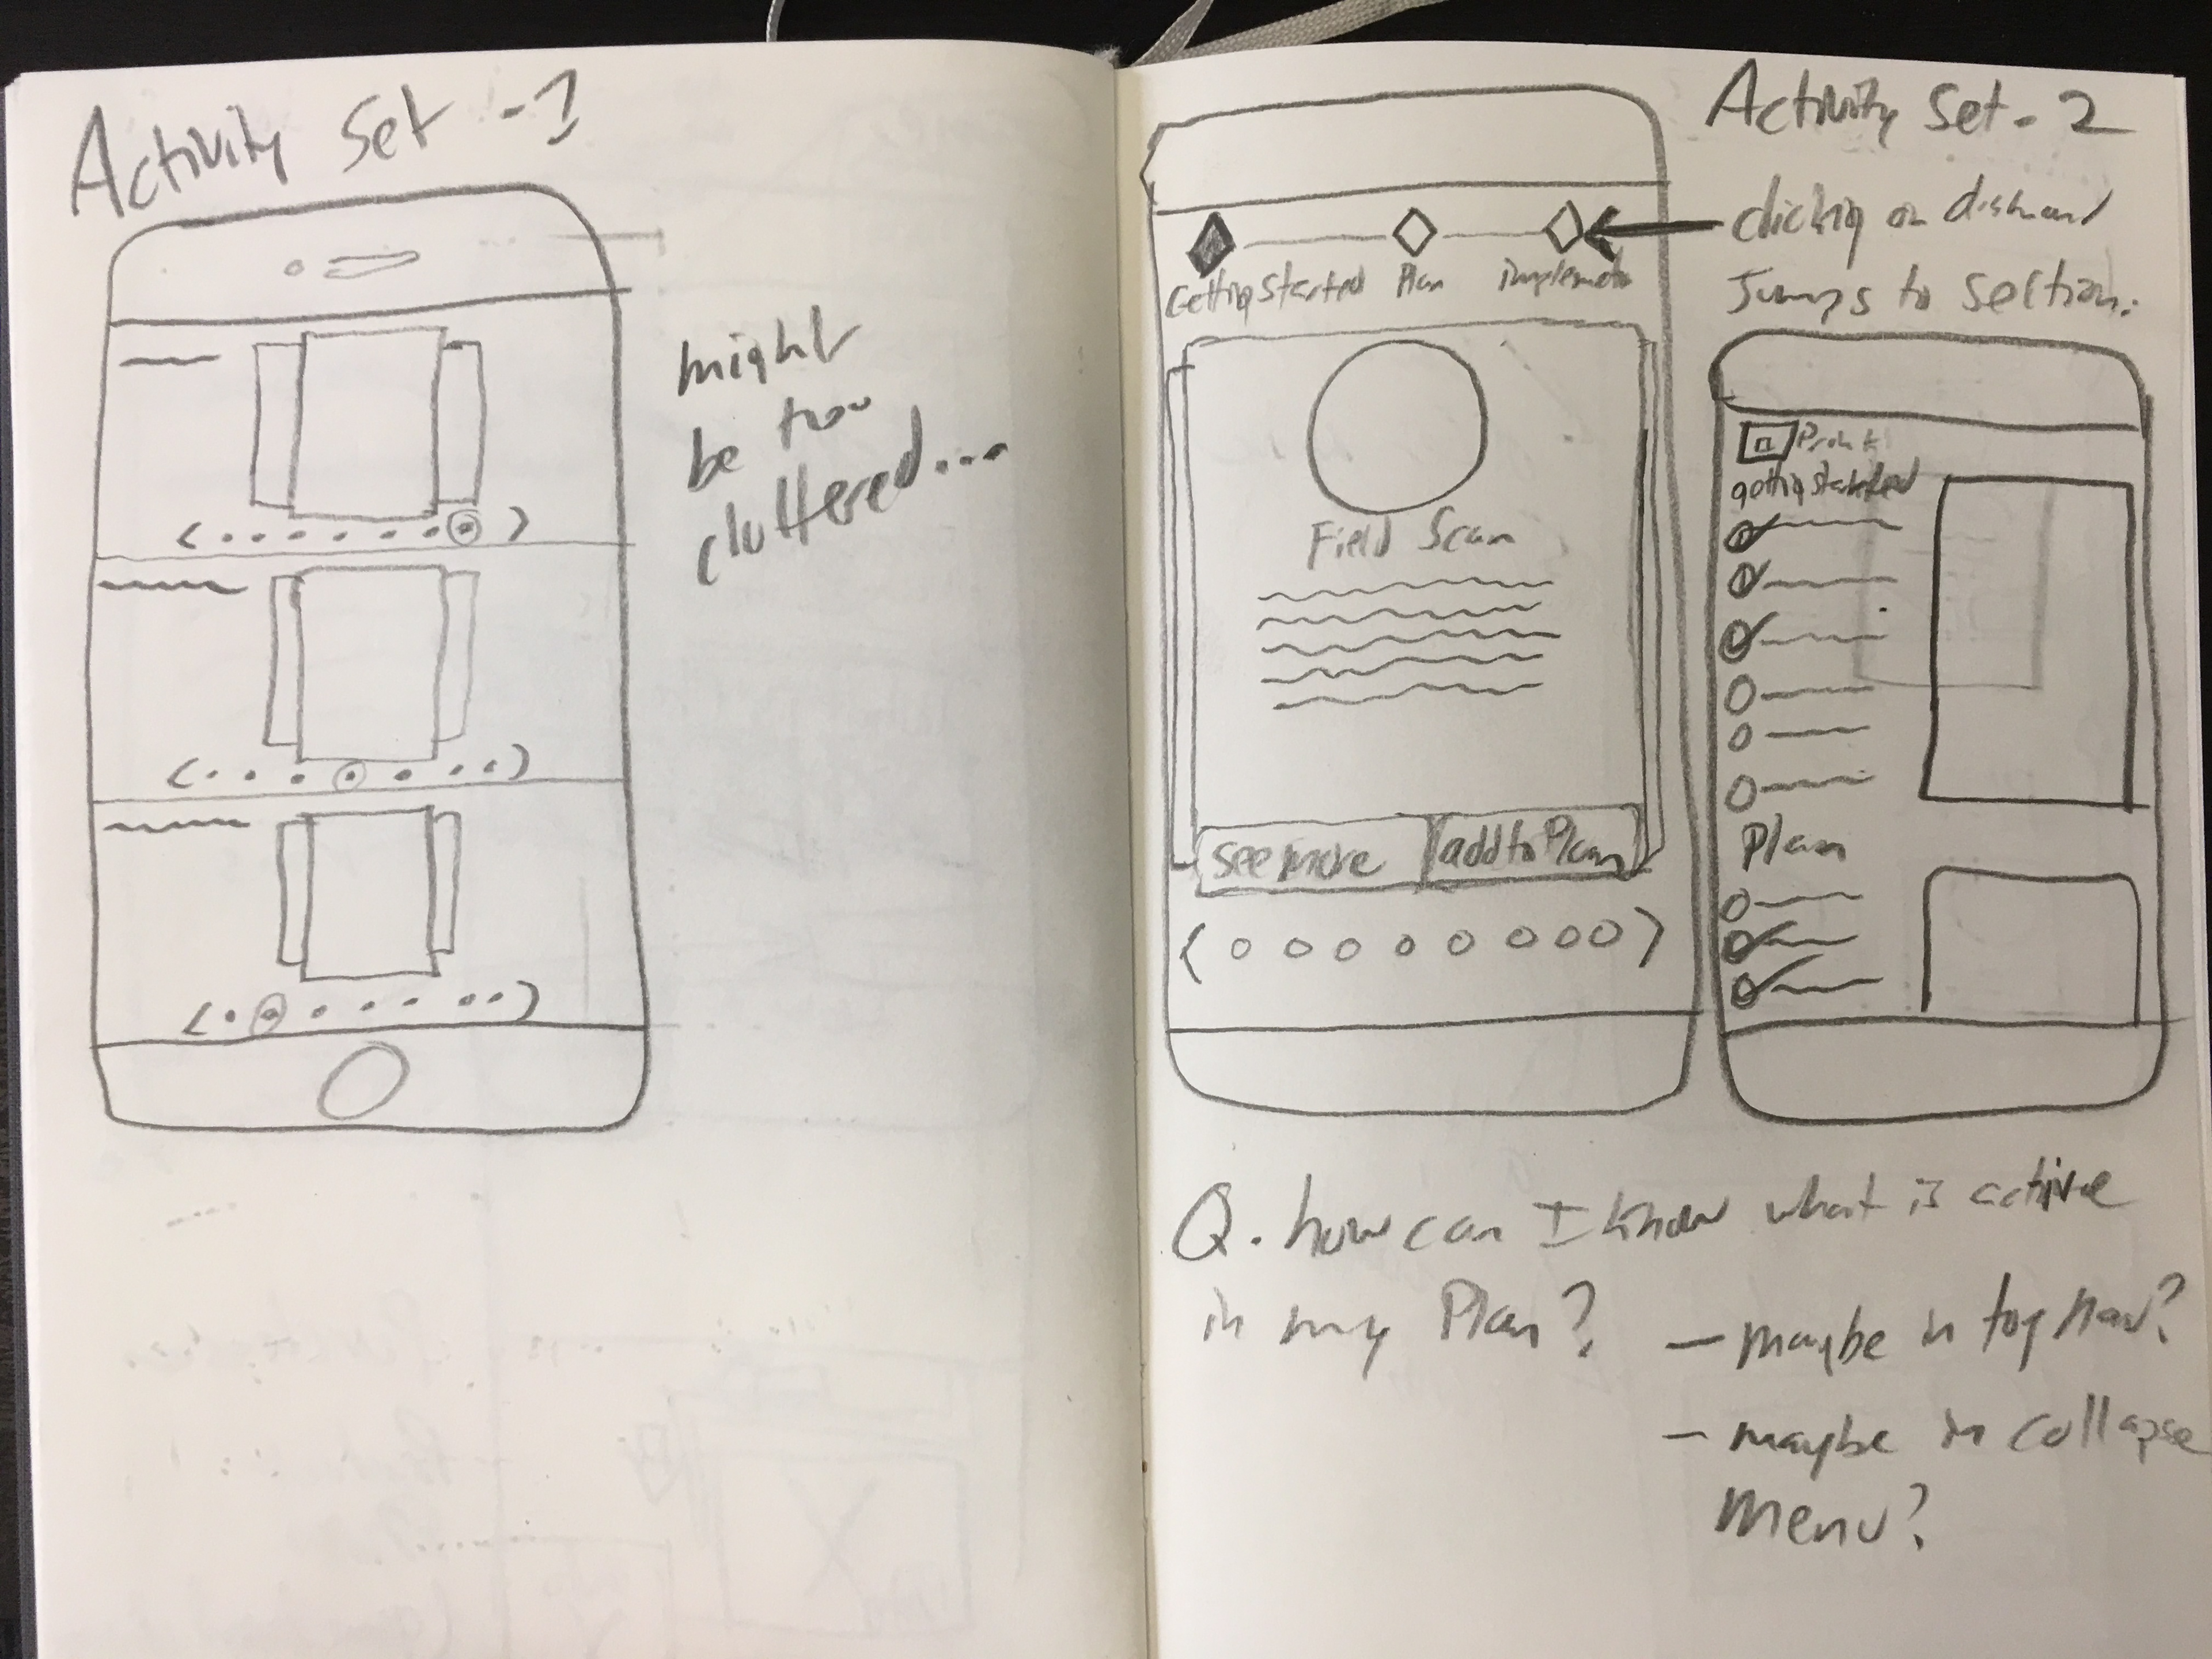 Activity Set - 1
might
be too
cluttered...
Activity Set - 2
clicking on diamond
Jumps to section.
Getting Started Plan
Field Scan
see more add to Plan
Print
getting started
Plan
Q. how can I know what is active
in my Plan?
- maybe in top nav?
- maybe in collapse
Menu?